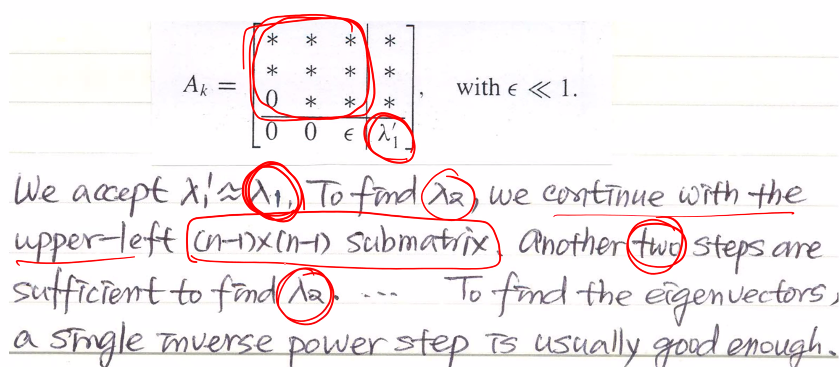 A_k = [ * * * | * ; * * * | * ; 0 * * | * ; 0 0 ϵ | λ′₁ ], with ϵ ≪ 1.
We accept λ₁′ ≈ λ₁. To find λ₂, we continue with the
upper-left (n-1)×(n-1) submatrix. Another two steps are
sufficient to find λ₂. ... To find the eigenvectors,
a single inverse power step is usually good enough.